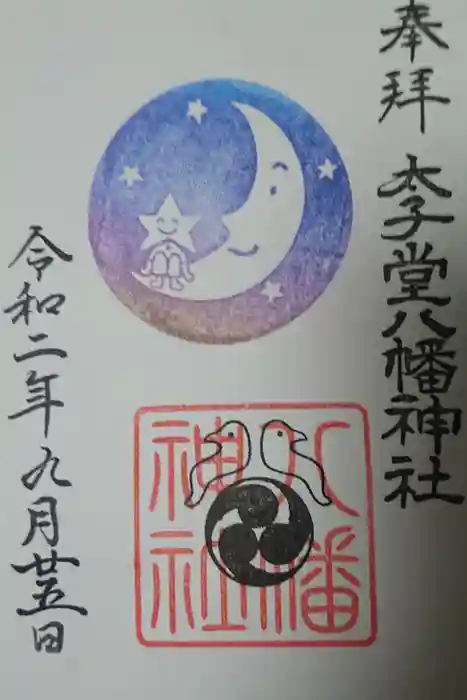 奉拝
太子堂八幡神社
八幡
神社
令和二年九月廿五日